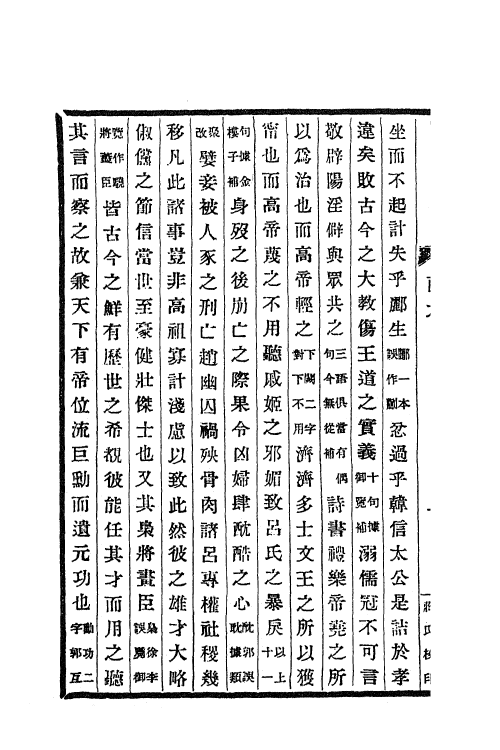 坐而不起計失乎酈生酈一本誤作劘忿過乎韓信太公是誥於孝
違矣敗古今之大教傷王道之實義十句據御覽補溺儒冠不可言
敬辟陽淫僻與眾共之三語俱當有偶句今無從補詩書禮樂帝堯之所
以爲治也而高帝輕之下闕二字對下不用濟濟多士文王之所以獲
甯也而高帝蔑之不用聽戚姬之邪媚致呂氏之暴戾以上十一
句據金樓子補身歿之後崩亡之際果令凶婦肆酖酷之心酖郭誤耽據類
聚改嬖妾被人豕之刑亡趙幽囚禍殃骨肉諸呂專權社稷幾
移凡此諸事豈非高祖寡計淺慮以致此然彼之雄才大略
俶儻之節信當世至豪健壯傑士也又其梟將畫臣梟徐李誤御
覽作驍將藎臣皆古今之鮮有歷世之希覩彼能任其才而用之聽
其言而察之故兼天下有帝位流巨勳而遺元功也勳功二字郭互